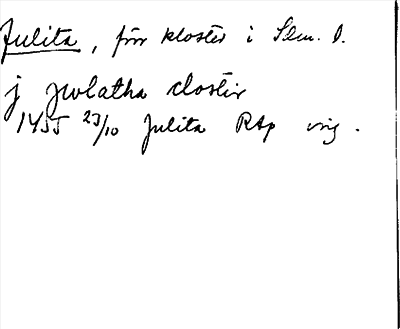 Julita, för kloster i Slm. D.
j jwlatha closter
1455 23/10 Julita RAp orig.